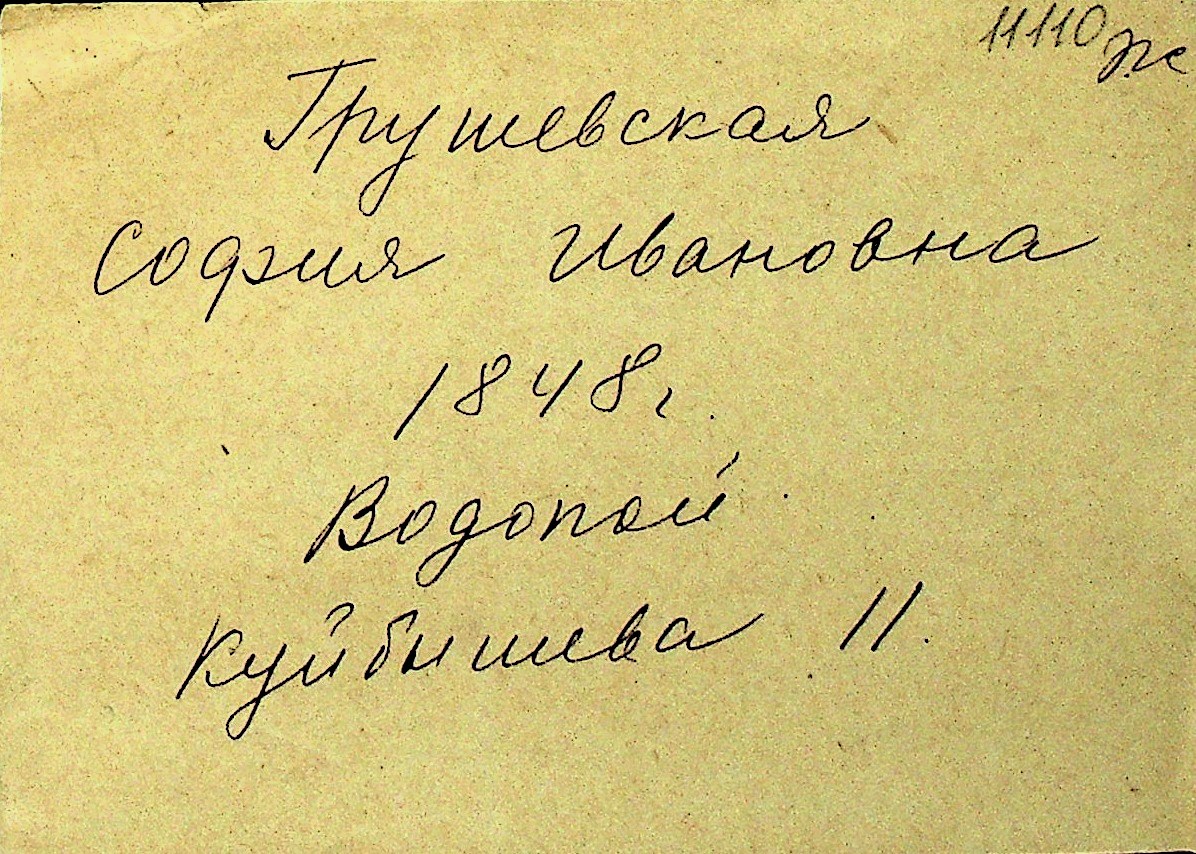 11110 же
Грушевская
София Ивановна
1848 г.
Водопой
Куйбышева 11.